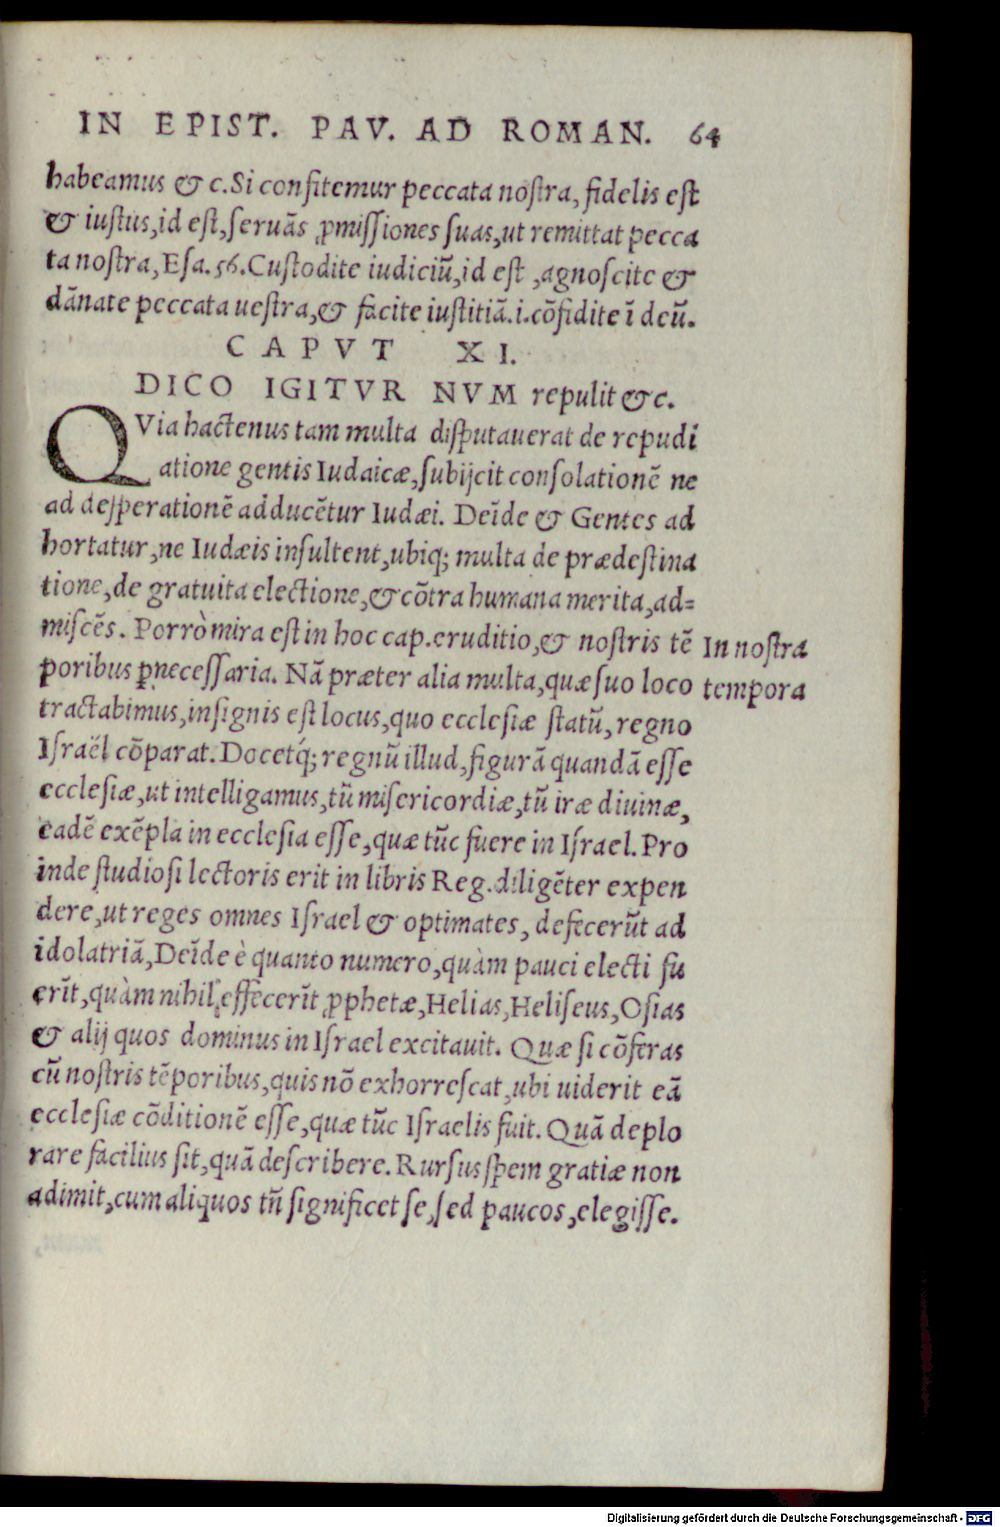 IN EPIST. PAV. AD ROMAN. 64
habeamus & c. Si confitemur peccata nostra, fidelis est
& iustus, id est, seruās ꝓmissiones suas, ut remittat pecca
ta nostra, Esa. 56. Custodite iudiciū, id est, agnoscite &
dānate peccata uestra, & facite iustitiā. i. cōfidite ī deū.
CAPVT XI.
DICO IGITVR NVM repulit & c.
QVia hactenus tam multa disputauerat de repudi
atione gentis Iudaicæ, subijcit consolationē ne
ad desperationē adducētur Iudæi. Deīde & Gentes ad
hortatur, ne Iudæis insultent, ubiq; multa de prædestina
tione, de gratuita electione, & cōtra humana merita, ad=
miscēs. Porrò mira est in hoc cap. eruditio, & nostris tē
In nostra
poribus ꝑnecessaria. Nā præter alia multa, quæ suo loco
tempora
tractabimus, insignis est locus, quo ecclesiæ statū, regno
Israël cōparat. Docetq́; regnū illud, figurā quandā esse
ecclesiæ, ut intelligamus, tū misericordiæ, tū iræ diuinæ,
eadē exēpla in ecclesia esse, quæ tūc fuere in Israel. Pro
inde studiosi lectoris erit in libris Reg. diligēter expen
dere, ut reges omnes Israel & optimates, defecerūt ad
idolatriā, Deīde è quanto numero, quàm pauci electi fu
erīt, quàm nihil effecerīt ꝓphetæ, Helias, Heliseus, Osias
& alij quos dominus in Israel excitauit. Quæ si cōferas
cū nostris tēporibus, quis nō exhorrescat, ubi uiderit eā
ecclesiæ cōditionē esse, quæ tūc Israelis fuit. Quā deplo
rare facilius sit, quā describere. Rursus spem gratiæ non
adimit, cum aliquos tn̄ significet se, sed paucos, elegisse.
Digitalisierung gefördert durch die Deutsche Forschungsgemeinschaft - DFG